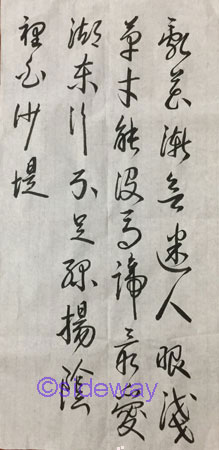 亂花漸欲迷人眼淺
草才能沒馬蹄最愛
湖東行不足綠揚陰
裡白沙堤
©sideway